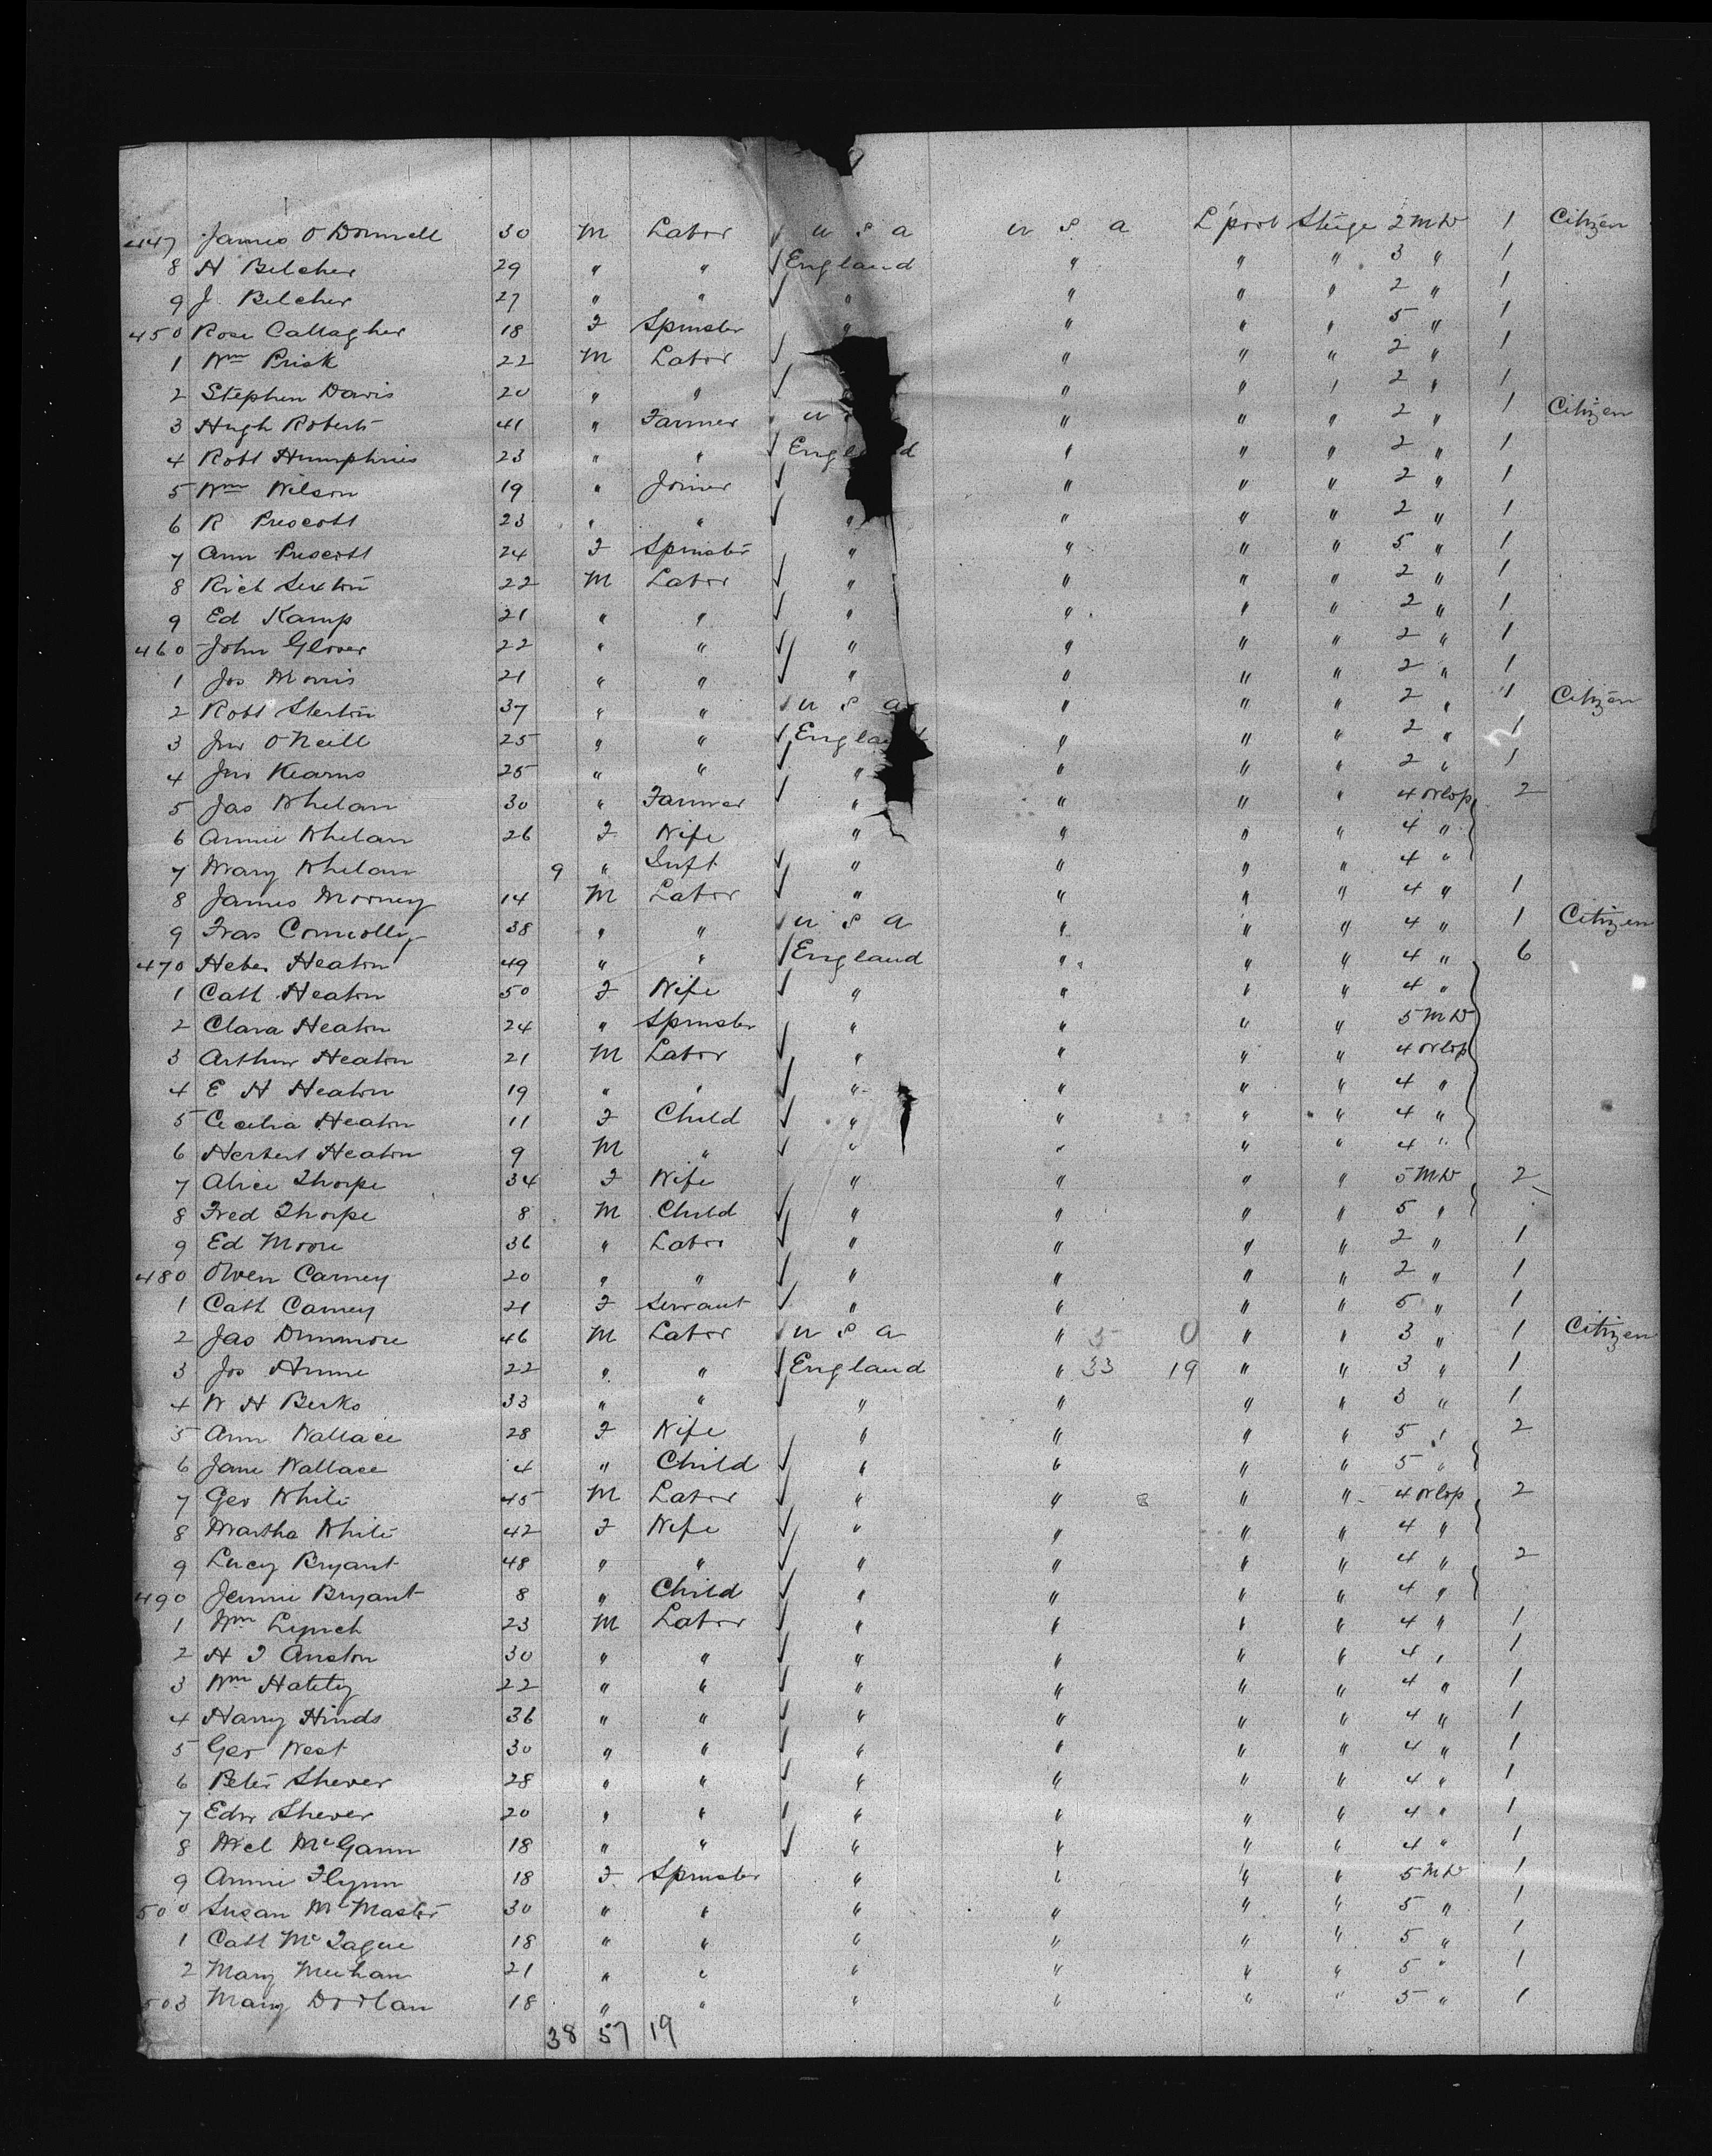 447 James O'Donnell 30 M Labor ✓ U S A U S A L'pool Stege 2 MD 1 Citizen
8 H Belcher 29 " " ✓ England " " " 3 " 1
9 J. Belcher 27 " " ✓ " " " " 2 " 1
450 Rose Callagher 18 F Spinster " " " " 5 " 1
1 Wm Prisk 22 M Labor ✓ " " " 2 " 1
2 Stephen Davis 20 " " ✓ " " " 2 " 1
3 Hugh Roberts 41 " Farmer U " " " 2 " 1 Citizen
4 Robt Humphries 23 " " ✓ Engl d " " " 2 " 1
5 Wm Wilson 19 " Joiner ✓ " " " 2 " 1
6 R Prescott 23 " " ✓ " " " " 2 " 1
7 Ann Prescott 24 F Spinster " " " " 5 " 1
8 Rich Sexton 22 M Labor ✓ " " " " 2 " 1
9 Ed Kamp 21 " " ✓ " " " " 2 " 1
460 John Glover 22 " " ✓ " " " " 2 " 1
1 Jos Morris 21 " " ✓ " " " " 2 " 1
2 Robt Sterton 37 " " ✓ U S A " " " 2 " 1 Citizen
3 Jno O'Neill 25 " " ✓ Engla " " " 2 " 1
4 Jno Kearns 25 " " ✓ " " " " 2 " 1
5 Jas Whelan 30 " Farmer ✓ " " " " 4 Orlop 2
6 Annie Whelan 26 F Wife " " " " 4 "
7 Mary Whelan 9 " Inft ✓ " " " " 4 "
8 James Mooney 14 M Labor ✓ " " " " 4 " 1
9 Fras Connolly 38 " " ✓ U S A " " " 4 " 1 Citizen
470 Heber Heaton 49 " " ✓ England " " " 4 " 6
1 Cath Heaton 50 F Wife ✓ " " " " 4 "
2 Clara Heaton 24 " Spinster " " " " 5 MD
3 Arthur Heaton 21 M Labor ✓ " " " " 4 Orlop
4 E H Heaton 19 " " ✓ " " " " 4 "
5 Cecelia Heaton 11 F Child ✓ " " " " 4 "
6 Herbert Heaton 9 M " ✓ " " " " 4 "
7 Alice Thorpe 34 F Wife " " " " 5 MD 2
8 Fred Thorpe 8 M Child ✓ " " " " 5 "
9 Ed Moore 36 " Labor ✓ " " " " 2 " 1
480 Owen Carney 20 " " ✓ " " " " 2 " 1
1 Cath Carney 21 F Servant ✓ " " " " 5 " 1
2 Jas Dunmore 46 M Labor ✓ U S A " 5 0 " " 3 " 1 Citizen
3 Jos Hume 22 " " ✓ England " 33 19 " " 3 " 1
4 W H Berks 33 " " ✓ " " " " 3 " 1
5 Ann Wallace 28 F Wife " " " " 5 " 2
6 Jane Wallace 4 " Child ✓ " " " " 5 "
7 Geo White 45 M Labor ✓ " " 8 " " 4 Orlop 2
8 Martha White 42 F Wife ✓ " " " " 4 "
9 Lucy Bryant 48 " " ✓ " " " " 4 " 2
490 Jennie Bryant 8 " Child ✓ " " " " 4 "
1 Wm Lynch 23 M Labor ✓ " " " " 4 " 1
2 H J Anston 30 " " ✓ " " " " 4 " 1
3 Wm 22 " " ✓ " " " " 4 " 1
4 Harry Hinds 36 " " ✓ " " " " 4 " 1
5 Geo West 30 " " ✓ " " " " 4 " 1
6 Peter Shever 28 " " ✓ " " " " 4 " 1
7 Edw Shever 20 " " ✓ " " " " 4 " 1
8 Mcl McGann 18 " " ✓ " " " " 4 " 1
9 Annie Flynn 18 F Spinster " " " " 5 MD 1
500 Susan McMaster 30 " " " " " " 5 " 1
1 Cath McTague 18 " " " " " " 5 " 1
2 Mary Meehan 21 " " " " " " 5 " 1
503 Mary Doolan 18 " " " " " " 5 " 1
38 57 19